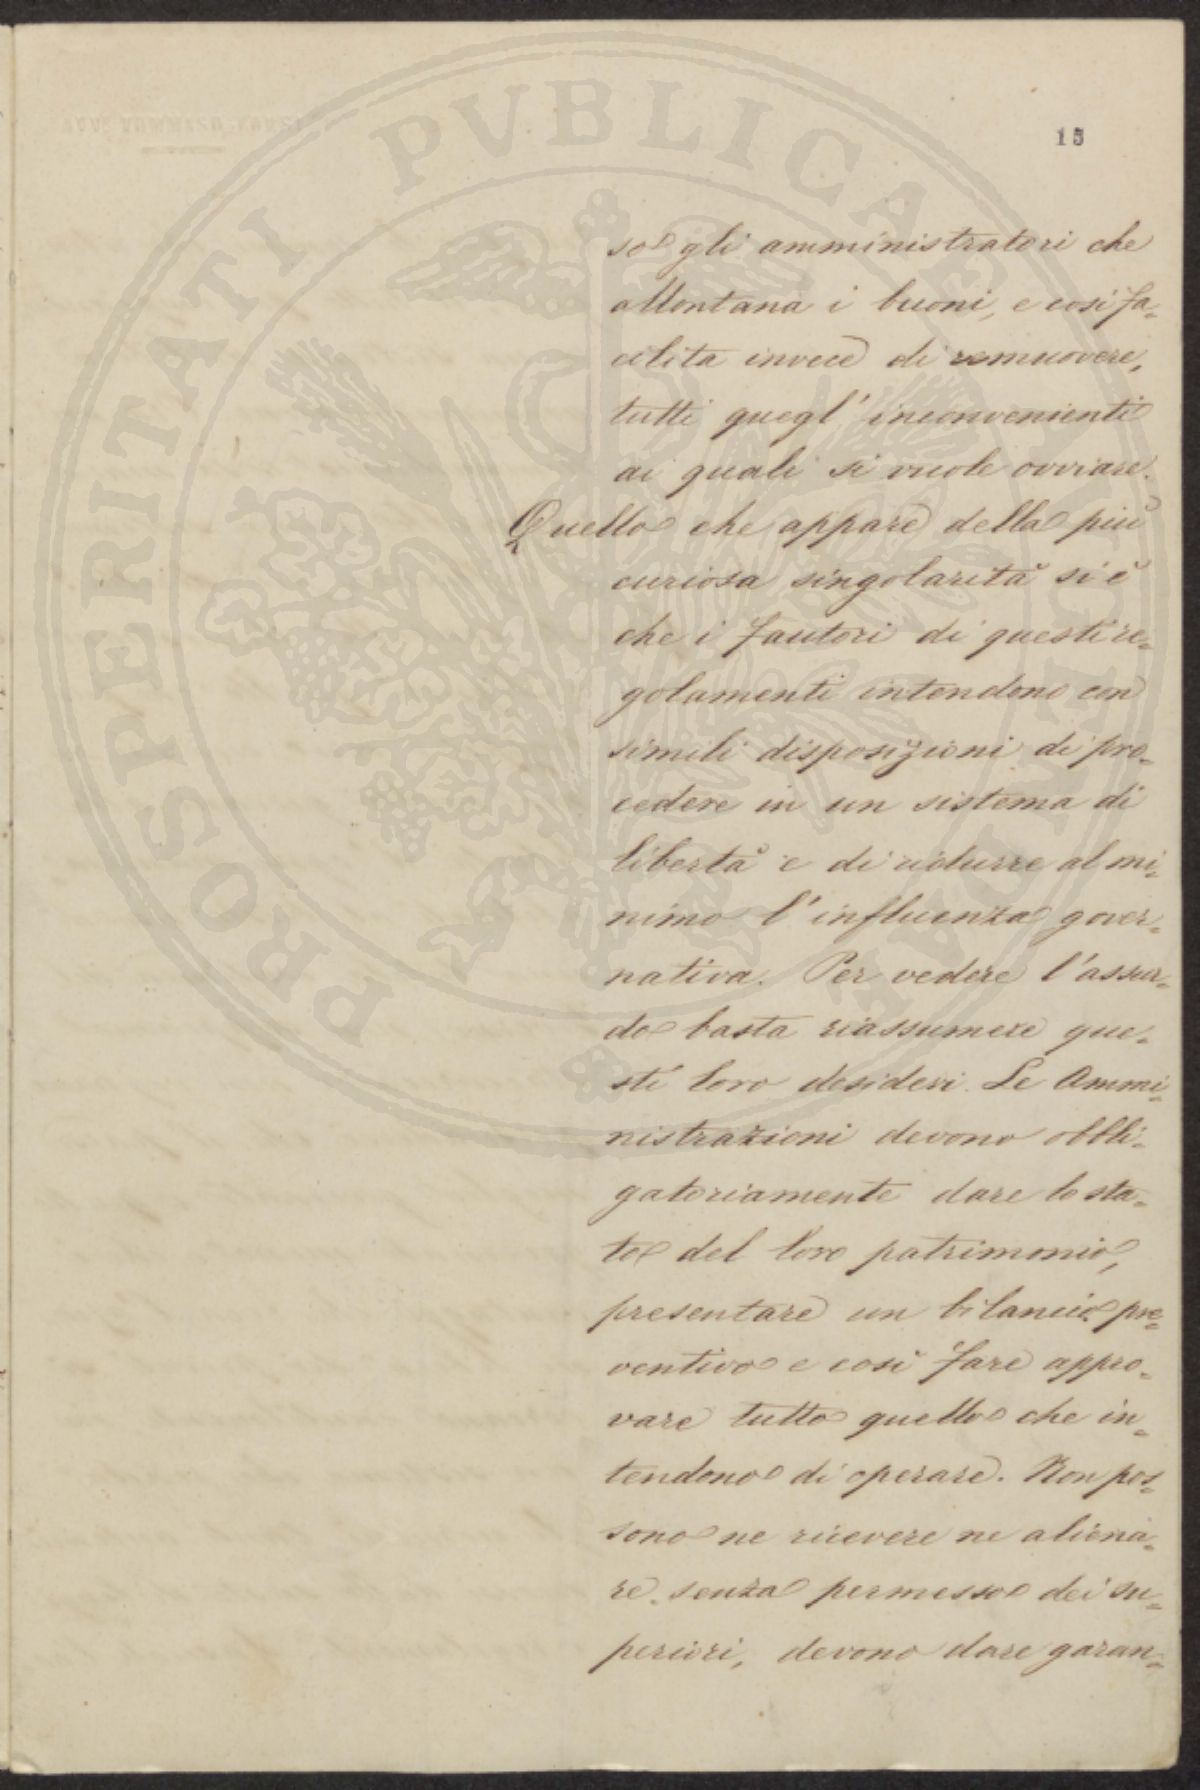 15
so gli amministratori che
allontana i buoni, e così fa-
cilita invece di remuovere,
tutti quegl' inconvenienti
ai quali si vuole ovviare.
Quello che appare della più
curiosa singolarità si è
che i fautori di questi re-
golamenti intendono con
simili disposizioni di pro-
cedere in un sistema di
libertà e di ridurre al mi-
nimo l'influenza gover-
nativa. Per vedere l'assur-
do basta riassumere que-
sti loro desideri. Le Ammi-
nistrazioni devono obbli-
gatoriamente dare lo sta-
to del loro patrimonio,
presentare un bilancio pre-
ventivo e così fare appro-
vare tutto quello che in-
tendono di operare. Non pos-
sono ne ricevere ne aliena-
re senza permesso dei su-
periori, devono dare garan-
PROSPERITATI PVBLICAE AVGENDAE